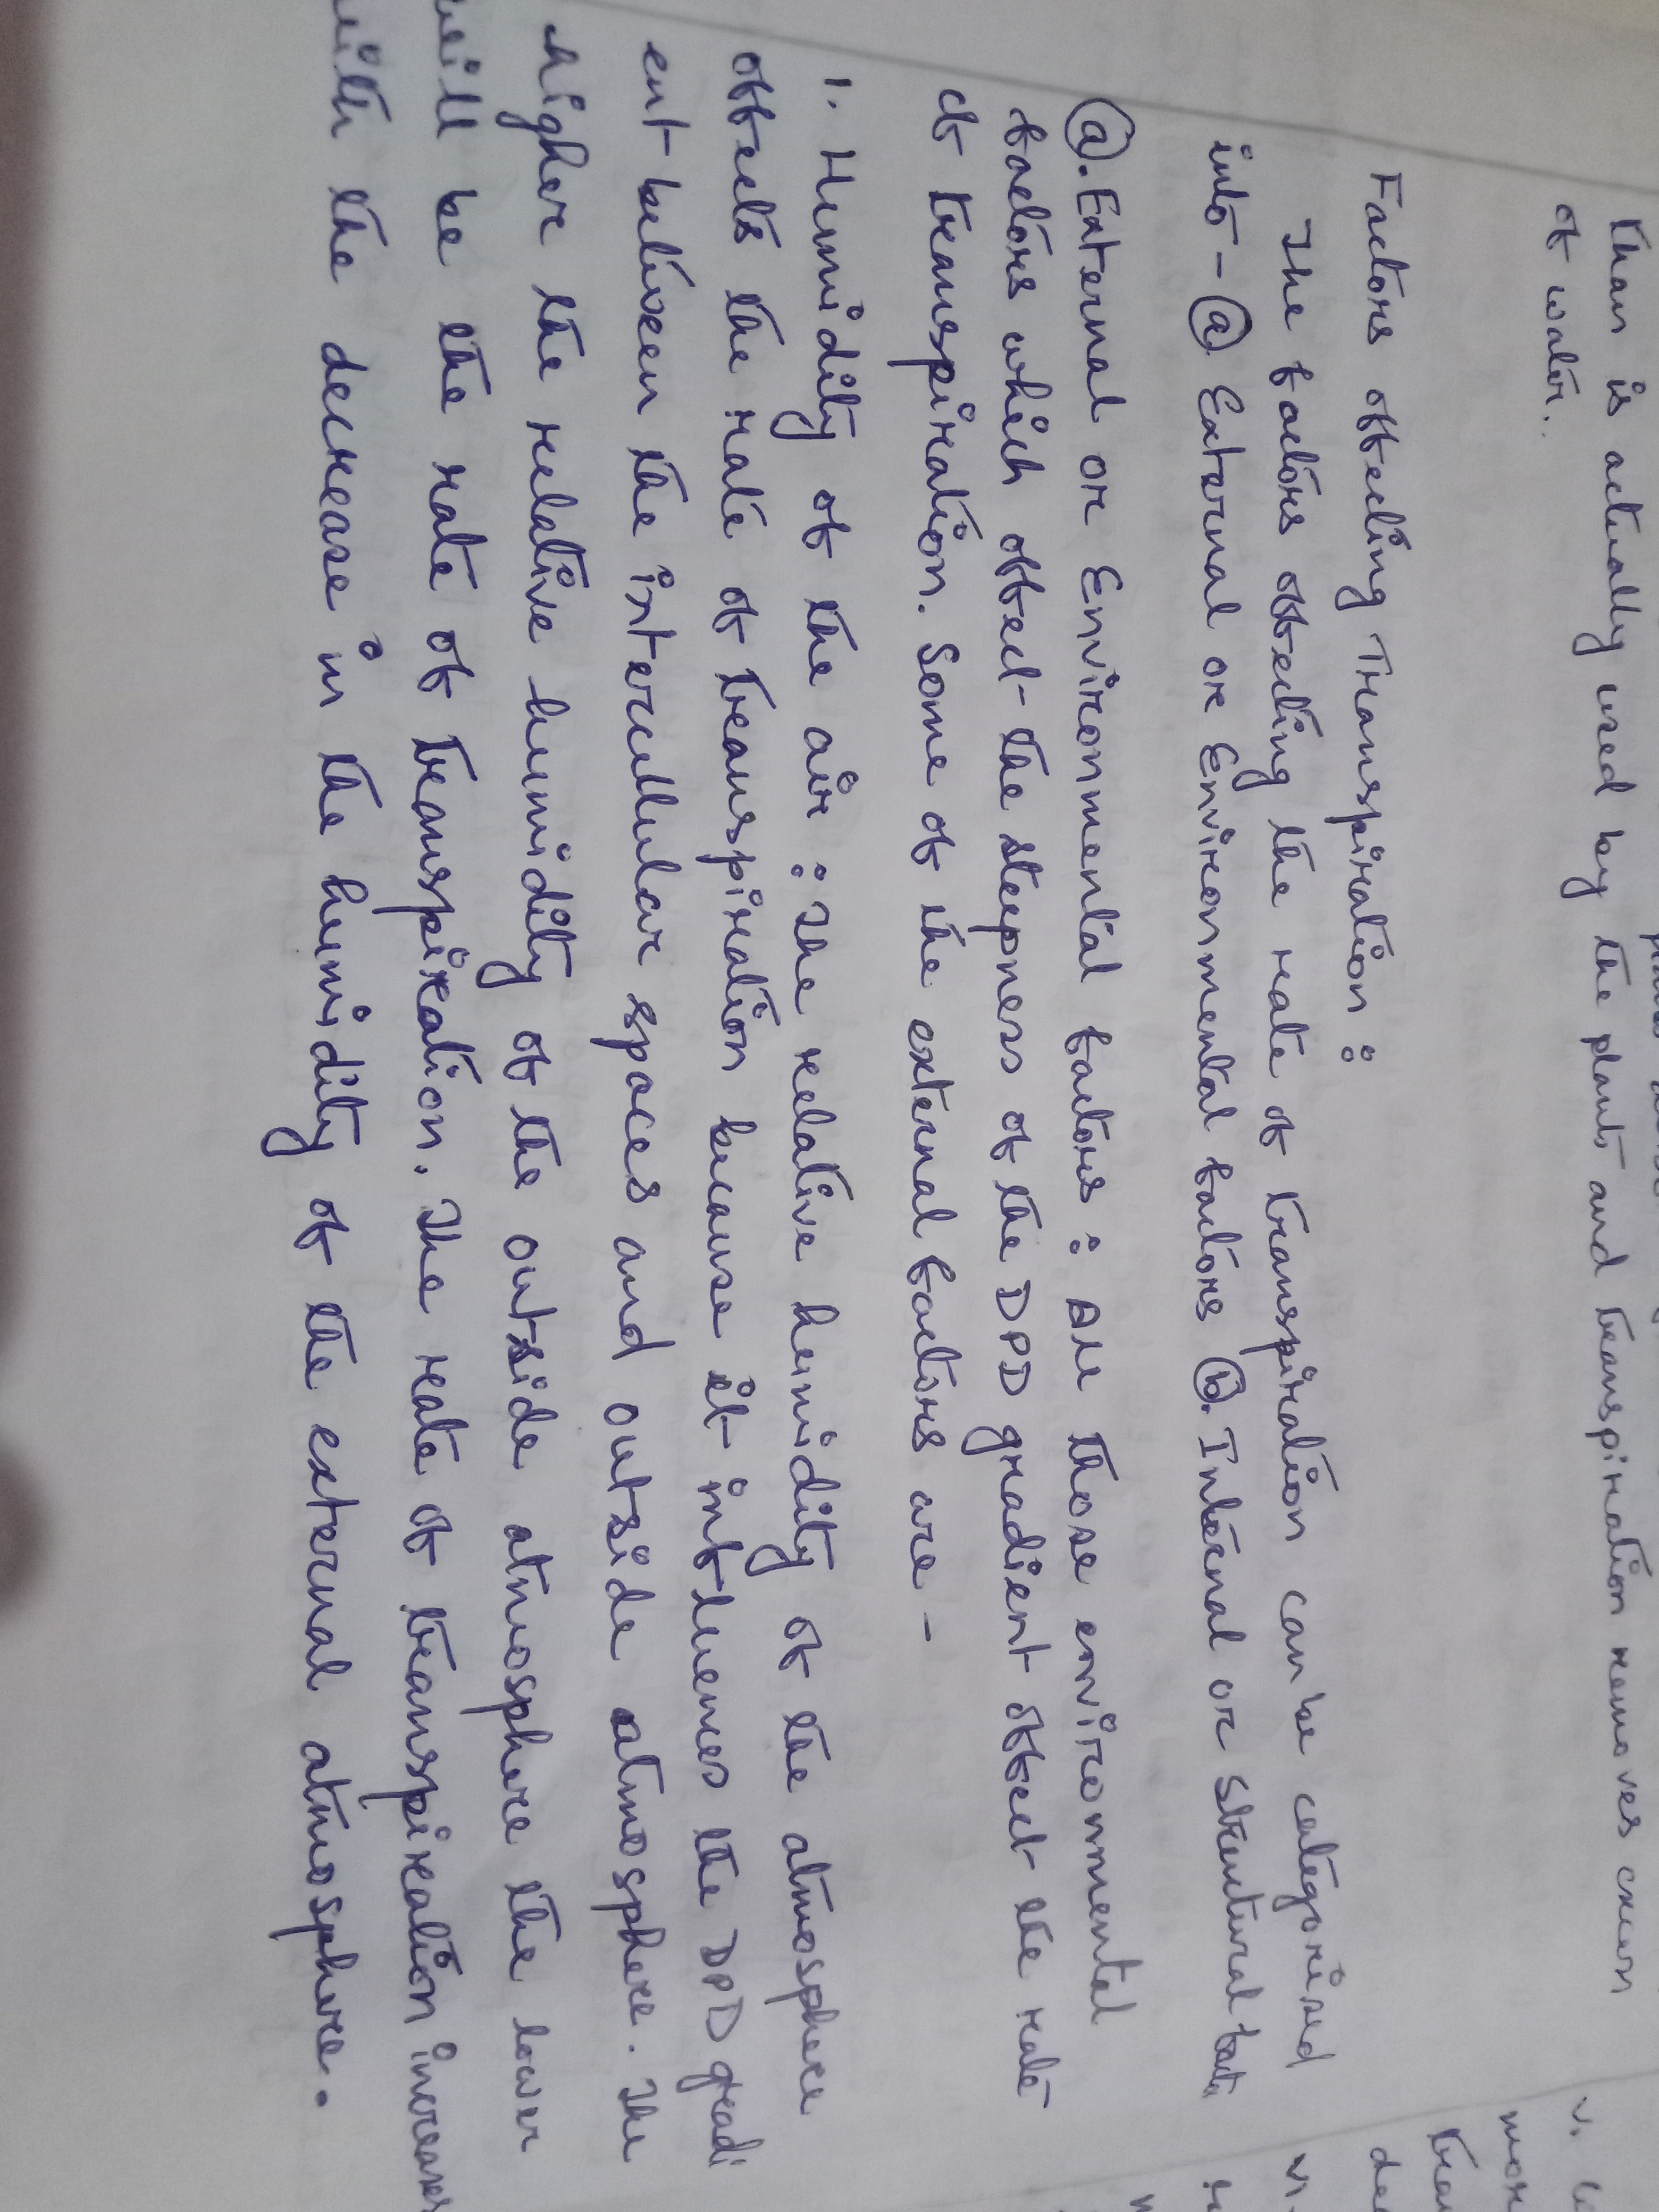 than is actually used by the plant, and transpiration removes excess
of water.
Factors affecting Transpiration :
The factors affecting the rate of transpiration can be categorised
into - (a) External or Environmental factors (b). Internal or Structural
(a). External or Environmental factors : All those environmental
factors which affect the steepness of the DPD gradient affect the rate
of transpiration. Some of the external factors are -
1. Humidity of the air : The relative humidity of the atmosphere
affects the rate of transpiration because it influences the DPD gradi
ent between the intercellular spaces and outside atmosphere. The
higher the relative humidity of the outside atmosphere the lower
will be the rate of transpiration. The rate of transpiration increases
with the decrease in the humidity of the external atmosphere.